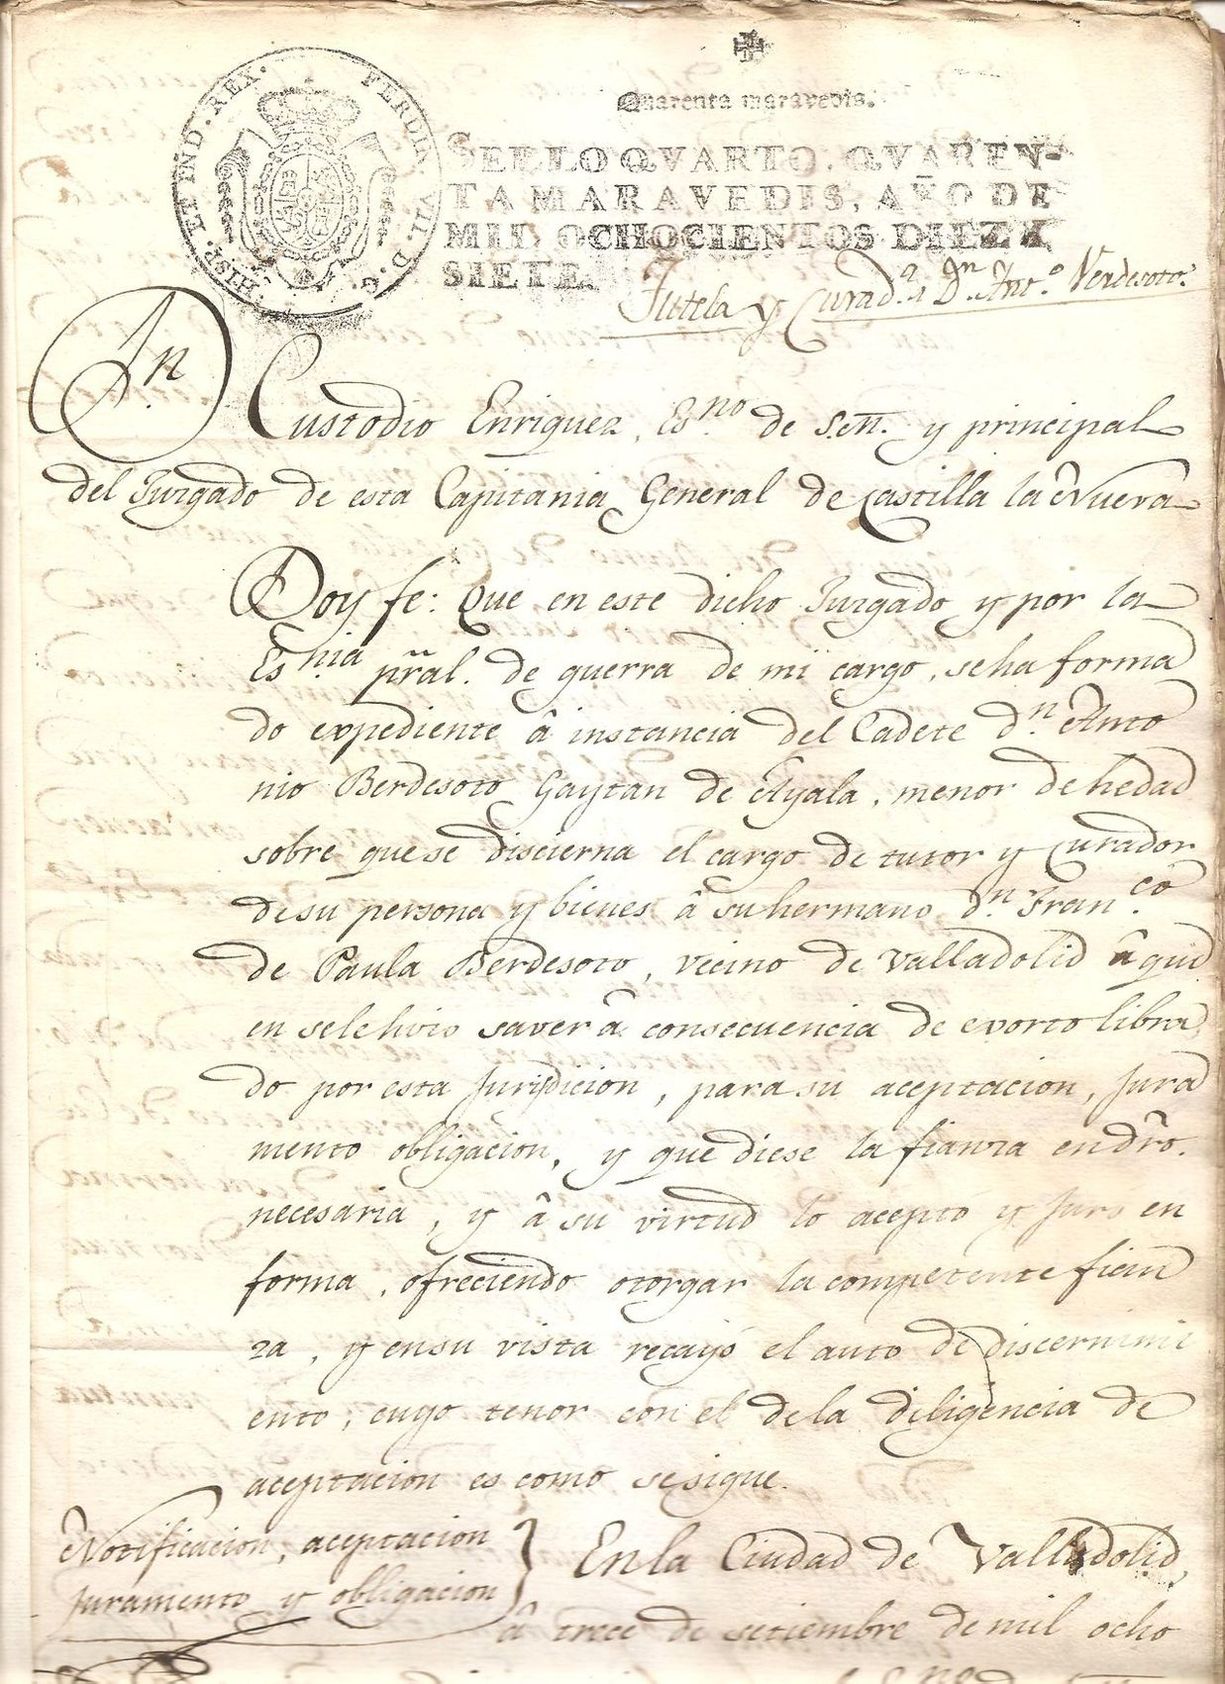 HISP. ET IND. REX. FERDIN. VII. D. G.
Quarenta maravedis.
SELLO QVARTO. QVAREN-
TA MARAVEDIS, AÑO DE
MIL OCHOCIENTOS DIEZ Y
SIETE.
Tutela y Curad.a a D.n Ant.o Verdesoto.
Dn.
Custodio Enriquez, Es.no de S.M. y principal
del Juzgado de esta Capitania General de Castilla la Nueva
Doy fe: Que en este dicho Juzgado y por la
Es.nia pr̃al. de guerra de mi cargo, se ha forma
do expediente â instancia del Cadete D.n Anto
nio Berdesoto Gaytan de Ayala, menor de hedad
sobre que se discierna el cargo de tutor y Curador
de su persona y bienes â su hermano D.n Fran.co
de Paula Berdesoto, vecino de Valladolid â qui
en se le hizo saver â consecuencia de exorto libra
do por esta Jurisdicion, para su aceptacion, Jura
mento obligacion, y que diese la fianza en dr̃o.
necesaria, y â su virtud lo acepto y juro en
forma, ofreciendo otorgar la competente fian
za, y en su vista recayó el auto de discernimi
ento, cuyo tenor con el de la diligencia de
aceptacion es como se sigue.
Notificacion, aceptacion
juramento y obligacion
En la Ciudad de Valladolid,
â trece de setiembre de mil ocho